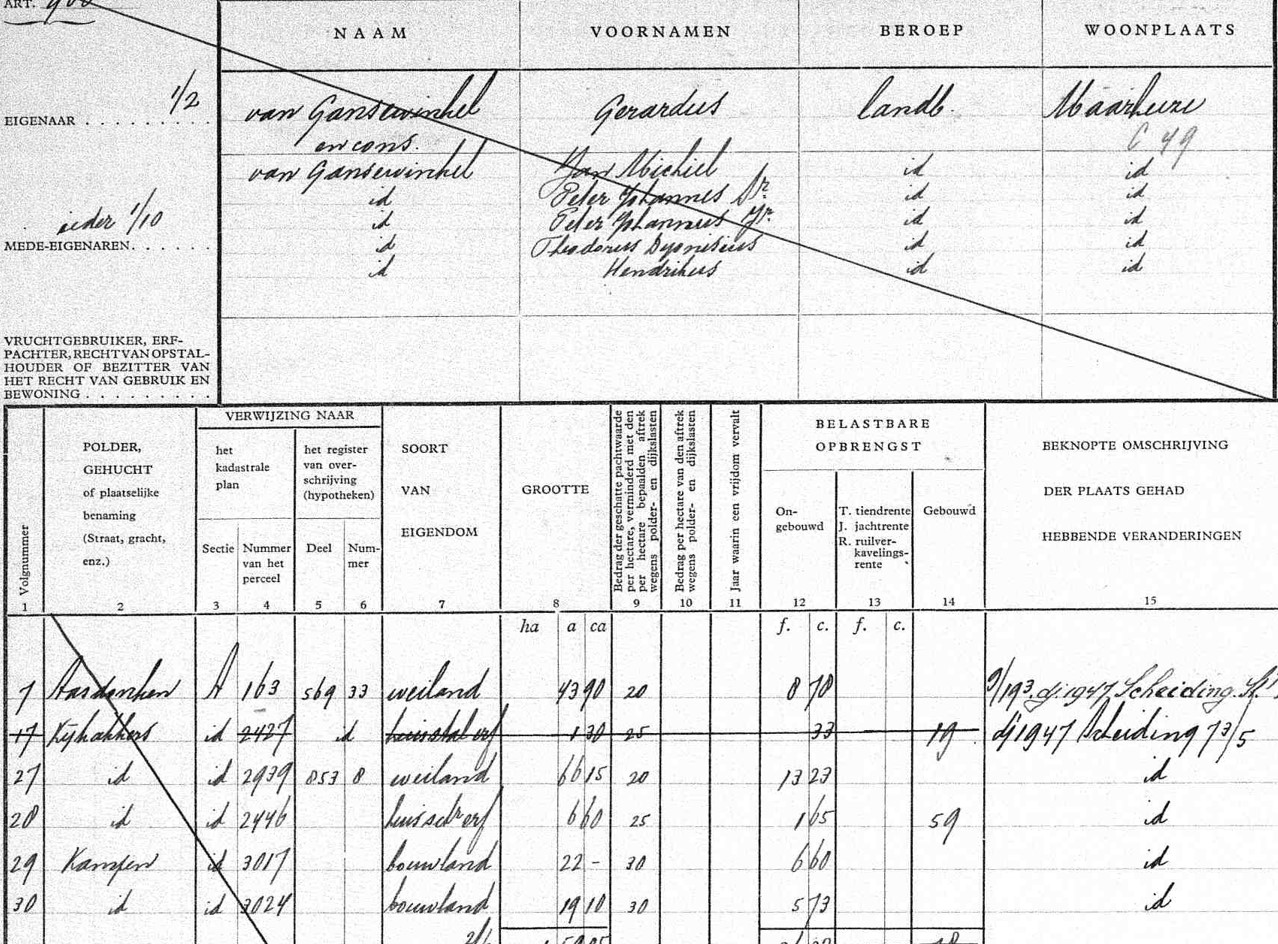 ART. 
NAAM VOORNAMEN BEROEP WOONPLAATS
EIGENAAR . . . . . . . . . 1/2 van Gansewinkel Gerardus landb. Maarheeze
en cons. C 49
van Gansewinkel Jan Michiel id id
id Peter Johannes Sr. id id
ieder 1/10 id Peter Johannes Jr. id id
MEDE-EIGENAREN. . . . . . id Theodorus Dyonisius id id
id Hendrikus id id
VRUCHTGEBRUIKER, ERF-
PACHTER, RECHT VAN OPSTAL-
HOUDER OF BEZITTER VAN
HET RECHT VAN GEBRUIK EN
BEWONING . . . . . . . . .
Volgnummer
1
POLDER,
GEHUCHT
of plaatselijke
benaming
(Straat, gracht,
enz.)
2
VERWIJZING NAAR
het
kadastrale
plan
Sectie
3
Nummer
van het
perceel
4
het register
van over-
schrijving
(hypotheken)
Deel
5
Num-
mer
6
SOORT
VAN
EIGENDOM
7
GROOTTE
8
Bedrag der geschatte pachtwaarde
per hectare, verminderd met den
per hectare bepaalden aftrek
wegens polder- en dijkslasten
9
Bedrag per hectare van den aftrek
wegens polder- en dijkslasten
10
Jaar waarin een vrijdom vervalt
11
BELASTBARE
OPBRENGST
On-
gebouwd
12
T. tiendrente
J. jachtrente
R. ruilver-
kavelings-
rente
13
Gebouwd
14
BEKNOPTE OMSCHRIJVING
DER PLAATS GEHAD
HEBBENDE VERANDERINGEN
15
ha a ca f. c. f. c.
7 Aasdonken A 163 569 33 weiland 43 90 20 8 78 dj. 1947 Scheiding
17 Kijkakkers id 2427 id huis stal erf 1 30 25 33 19 dj 1947 Scheiding 73/5
27 id id 2939 853 8 weiland 66 15 20 13 23 id
28 id id 2446 huis schr erf 6 60 25 1 65 59 id
29 Kampen id 3017 bouwland 22 - 30 6 60 id
30 id id 3024 bouwland 19 10 30 5 73 id